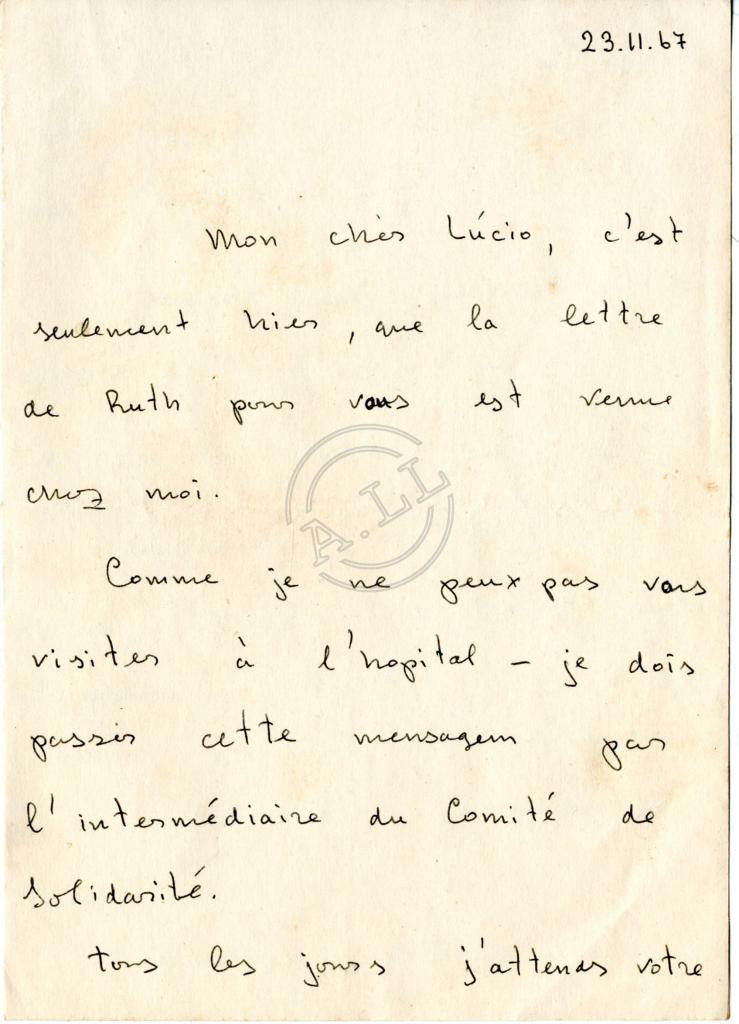 23.11.67
Mon chèr Lúcio, c'est
seulement hier, que la lettre
de Ruth pour vous est venue
chez moi.
A.LL
Comme je ne peux pas vous
visiter à l'hopital - je dois
passer cette mensagem par
l'intermédiaire du Comité de
Solidarité.
tous les jours j'attends votre